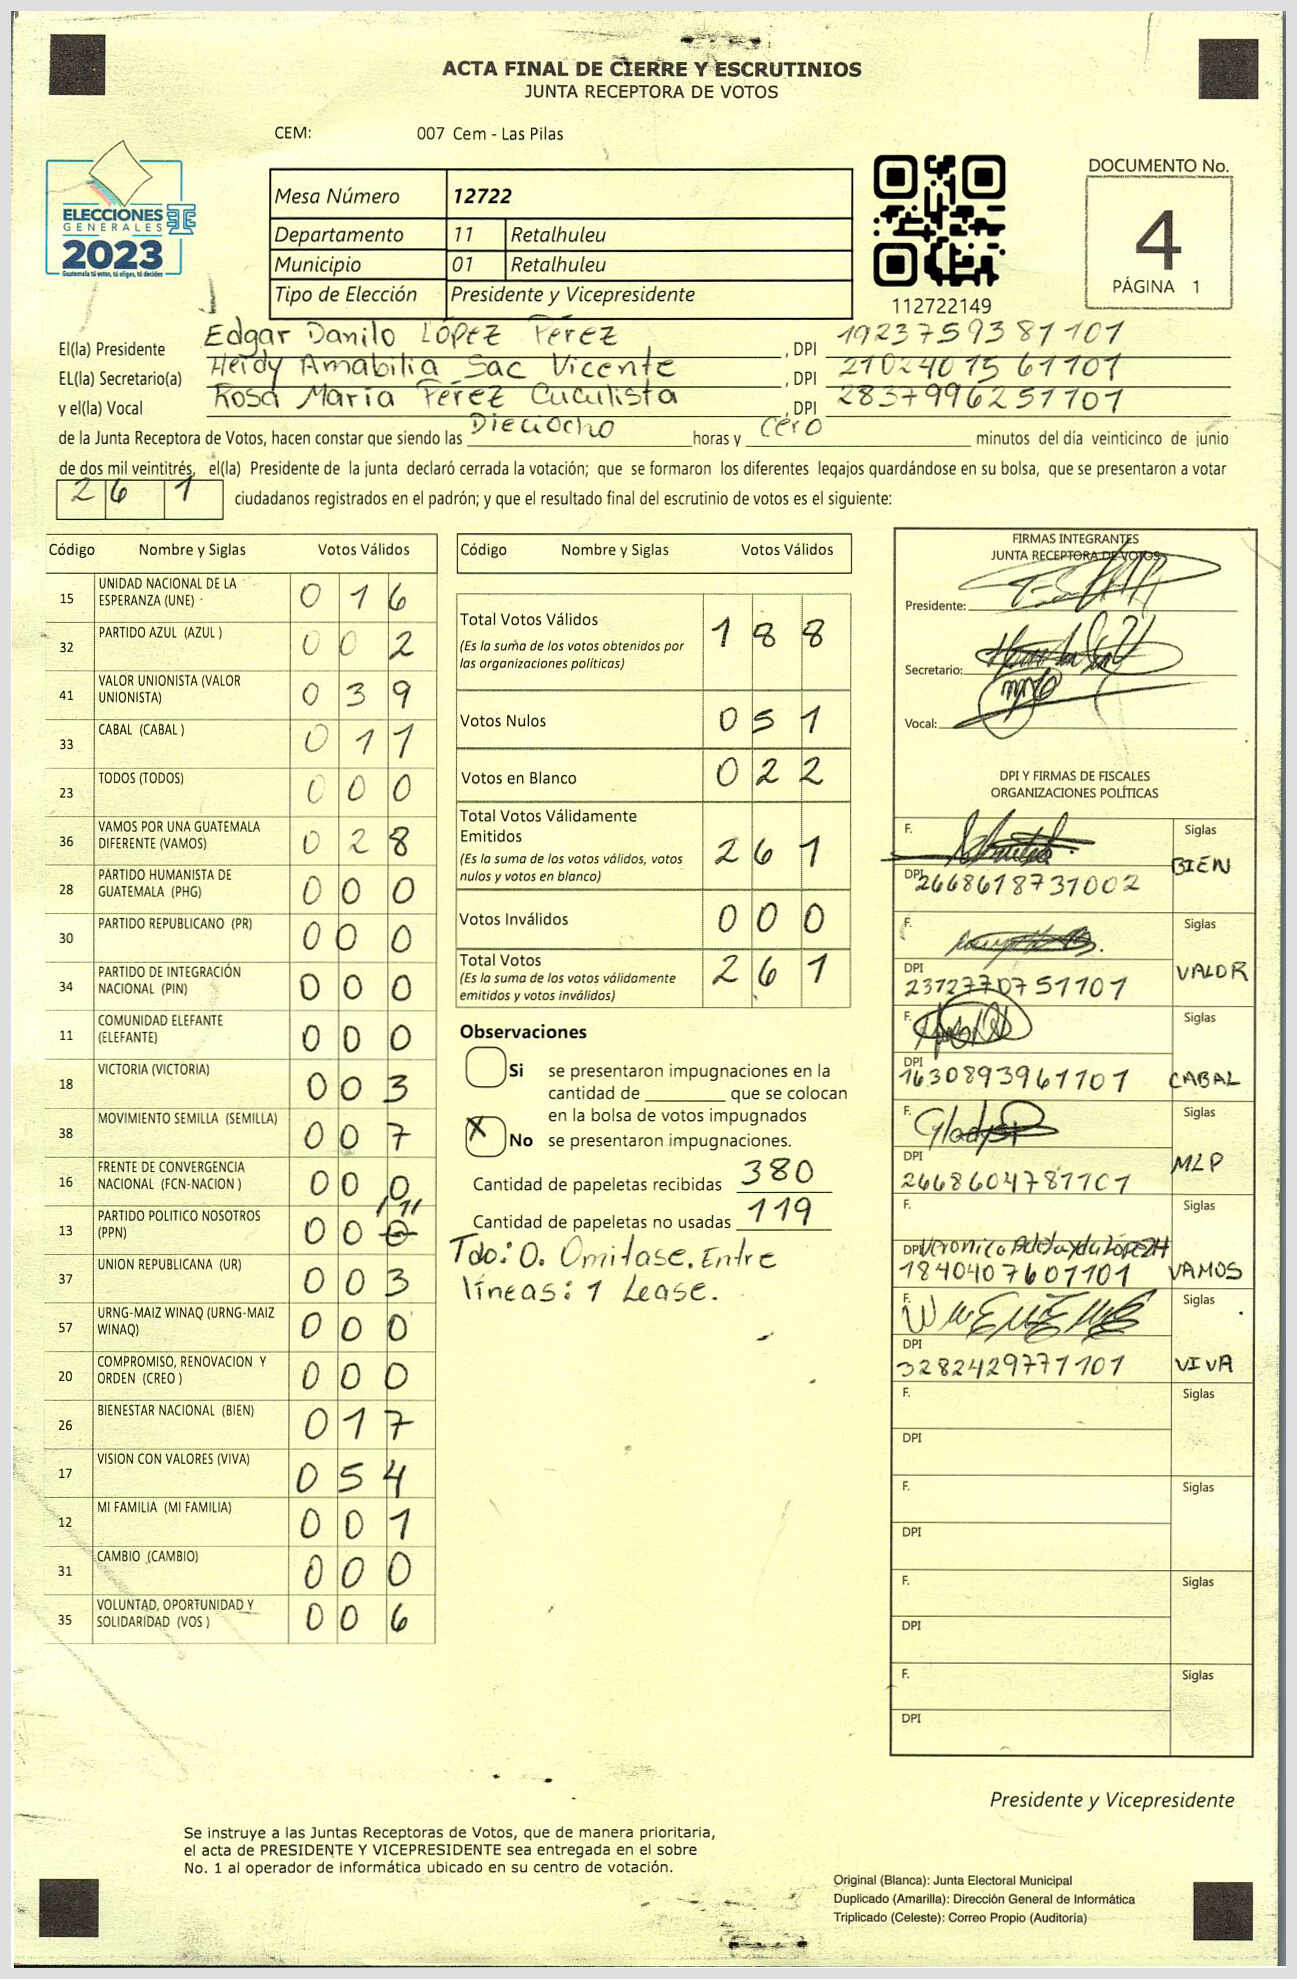 ACTA FINAL DE CIERRE Y ESCRUTINIOS
JUNTA RECEPTORA DE VOTOS
CEM: 007 Cem - Las Pilas
ELECCIONES
GENERALES
2023
Guatemala tú votas, tú eliges, tú decides
Mesa Número 12722
Departamento 11 Retalhuleu
Municipio 01 Retalhuleu
Tipo de Elección Presidente y Vicepresidente
112722149
DOCUMENTO No.
4
PÁGINA 1
El(la) Presidente Edgar Danilo López Pérez , DPI 1923759381101
EL(la) Secretario(a) Heidy Amabilia Sac Vicente , DPI 2102401561101
y el(la) Vocal Rosa María Pérez Cuculista , DPI 2837996251101
de la Junta Receptora de Votos, hacen constar que siendo las Dieciocho horas y cero minutos del día veinticinco de junio
de dos mil veintitrés, el(la) Presidente de la junta declaró cerrada la votación; que se formaron los diferentes legajos guardándose en su bolsa, que se presentaron a votar
261 ciudadanos registrados en el padrón; y que el resultado final del escrutinio de votos es el siguiente:
Código Nombre y Siglas Votos Válidos
15 UNIDAD NACIONAL DE LA ESPERANZA (UNE) 016
32 PARTIDO AZUL (AZUL ) 002
41 VALOR UNIONISTA (VALOR UNIONISTA) 039
33 CABAL (CABAL ) 011
23 TODOS (TODOS) 000
36 VAMOS POR UNA GUATEMALA DIFERENTE (VAMOS) 028
28 PARTIDO HUMANISTA DE GUATEMALA (PHG) 000
30 PARTIDO REPUBLICANO (PR) 000
34 PARTIDO DE INTEGRACIÓN NACIONAL (PIN) 000
11 COMUNIDAD ELEFANTE (ELEFANTE) 000
18 VICTORIA (VICTORIA) 003
38 MOVIMIENTO SEMILLA (SEMILLA) 007
16 FRENTE DE CONVERGENCIA NACIONAL (FCN-NACION ) 000
13 PARTIDO POLITICO NOSOTROS (PPN) 000 /1//
37 UNION REPUBLICANA (UR) 003
57 URNG-MAIZ WINAQ (URNG-MAIZ WINAQ) 000
20 COMPROMISO, RENOVACION Y ORDEN (CREO ) 000
26 BIENESTAR NACIONAL (BIEN) 017
17 VISION CON VALORES (VIVA) 054
12 MI FAMILIA (MI FAMILIA) 001
31 CAMBIO (CAMBIO) 000
35 VOLUNTAD, OPORTUNIDAD Y SOLIDARIDAD (VOS ) 006
Código Nombre y Siglas Votos Válidos
Total Votos Válidos 188
(Es la suma de los votos obtenidos por
las organizaciones políticas)
Votos Nulos 051
Votos en Blanco 022
Total Votos Válidamente
Emitidos 261
(Es la suma de los votos válidos, votos
nulos y votos en blanco)
Votos Inválidos 000
Total Votos 261
(Es la suma de los votos válidamente
emitidos y votos inválidos)
Observaciones
Si se presentaron impugnaciones en la
cantidad de ________ que se colocan
en la bolsa de votos impugnados
X No se presentaron impugnaciones.
Cantidad de papeletas recibidas 380
Cantidad de papeletas no usadas 119
Tdo: 0. Omitase. Entre
líneas: 1 Lease.
FIRMAS INTEGRANTES
JUNTA RECEPTORA DE VOTOS
Presidente:
Secretario:
Vocal:
DPI Y FIRMAS DE FISCALES
ORGANIZACIONES POLÍTICAS
F. Siglas
DPI 2668618731002 BIEN
F. Siglas
DPI 2312770751101 VALOR
F. Siglas
DPI 1630893961101 CABAL
F. Gladys Siglas
DPI 2668604781101 MLP
F. Siglas
DPI Veronica
1840407601101 VAMOS
F. Siglas
DPI
3282429771101 VIVA
F. Siglas
DPI
F. Siglas
DPI
F. Siglas
DPI
F. Siglas
DPI
Presidente y Vicepresidente
Se instruye a las Juntas Receptoras de Votos, que de manera prioritaria,
el acta de PRESIDENTE Y VICEPRESIDENTE sea entregada en el sobre
No. 1 al operador de informática ubicado en su centro de votación.
Original (Blanca): Junta Electoral Municipal
Duplicado (Amarilla): Dirección General de Informática
Triplicado (Celeste): Correo Propio (Auditoría)